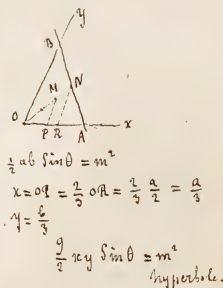 y
B
M
N
O
P R A x
½ ab Sinθ = m²
x = OP = 2/3 OR = 2/3 a/2 = a/3
y = b/3
9/2 xy Sinθ = m²
hyperbole.